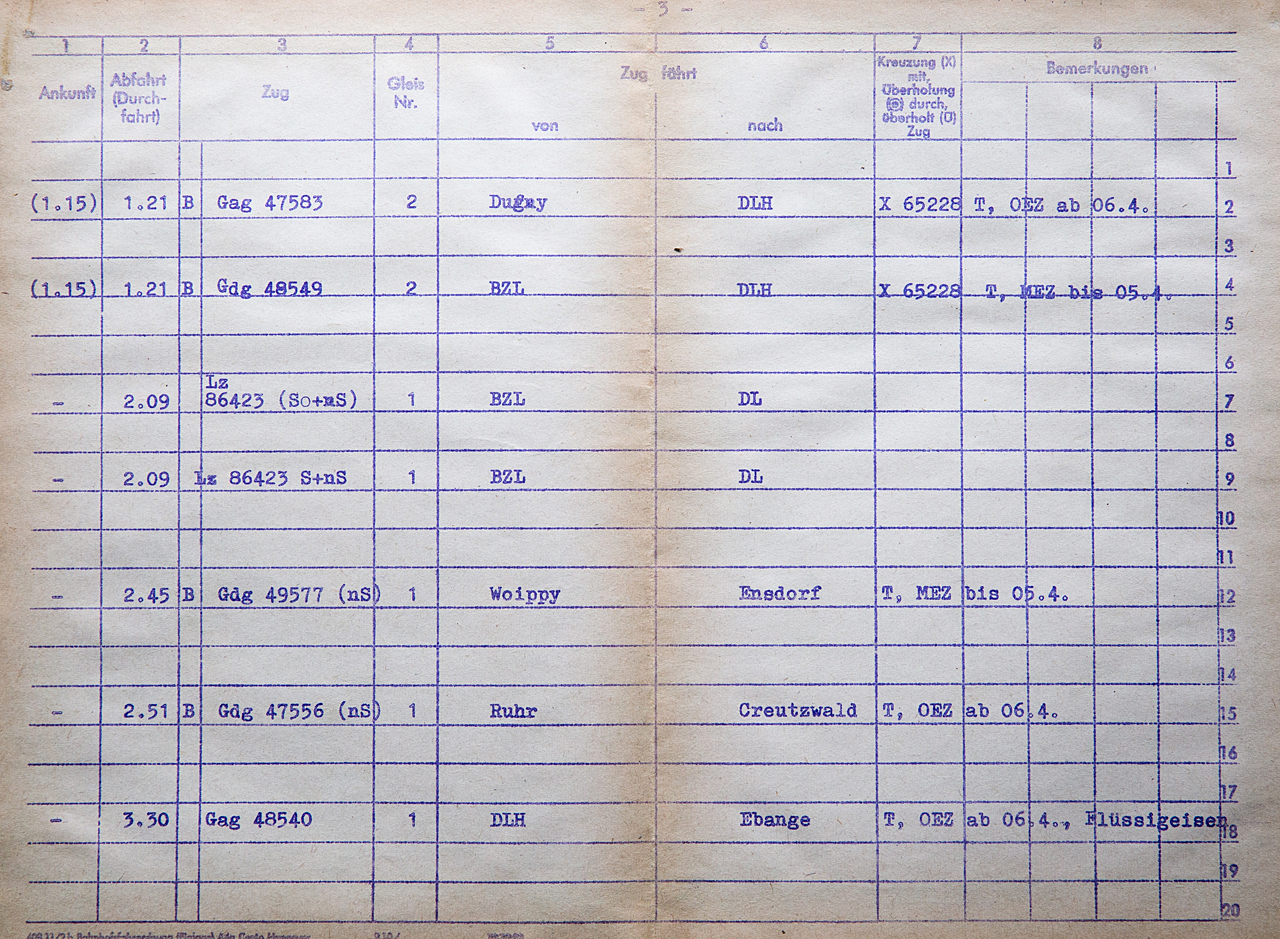 - 3 -
1 2 3 4 5 6 7 8
Ankunft
Abfahrt
(Durch-
fahrt)
Zug
Gleis
Nr.
Zug fährt
von
nach
Kreuzung (X)
mit,
Überholung
durch,
überholt (Ü)
Zug
Bemerkungen
1
(1.15) 1.21 B Gag 47583 2 Dugny DLH X 65228 T, OEZ ab 06.4. 2
3
(1.15) 1.21 B Gdg 48549 2 BZL DLH X 65228 T, MEZ bis 05.4. 4
5
6
Lz
- 2.09 86423 (So+nS) 1 BZL DL 7
8
- 2.09 Lz 86423 S+nS 1 BZL DL 9
10
11
- 2.45 B Gdg 49577 (nS) 1 Woippy Ensdorf T, MEZ bis 05.4. 12
13
14
- 2.51 B Gdg 47556 (nS) 1 Ruhr Creutzwald T, OEZ ab 06.4. 15
16
17
- 3.30 Gag 48540 1 DLH Ebange T, OEZ ab 06.4., Flüssigeisen 18
19
20